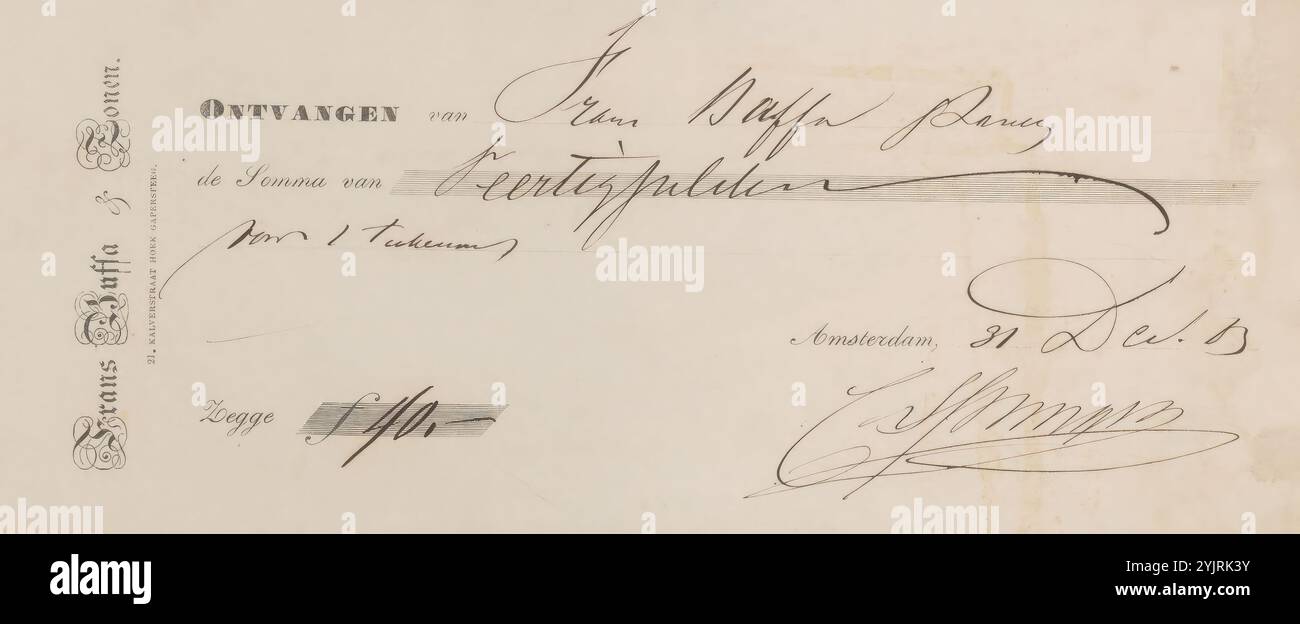 Frans Buffa & Zonen.
21, KALVERSTRAAT HOEK GAPERSTEEG.
ONTVANGEN van Frans Buffa
de Somma van Veertig gulden
voor 1
Amsterdam, 31 Dec. 83
Zegge f 40,-
alamy
Image ID: 2YJRK3Y
www.alamy.com